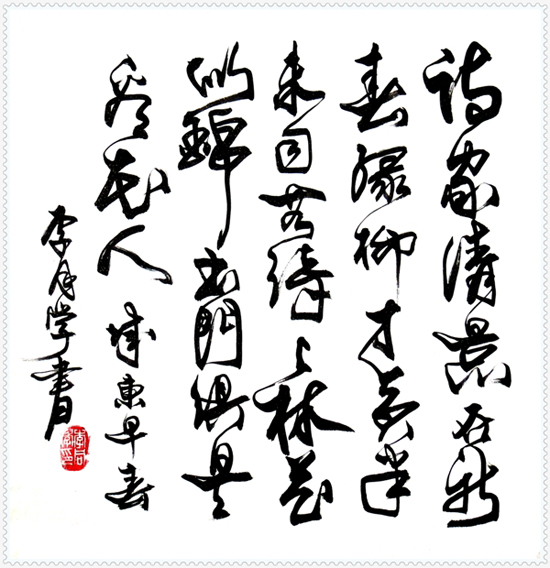 诗家清景在新
春绿柳才黄半
未匀若待上林花
似錦出門俱是
看花人 城東早春
李月学書